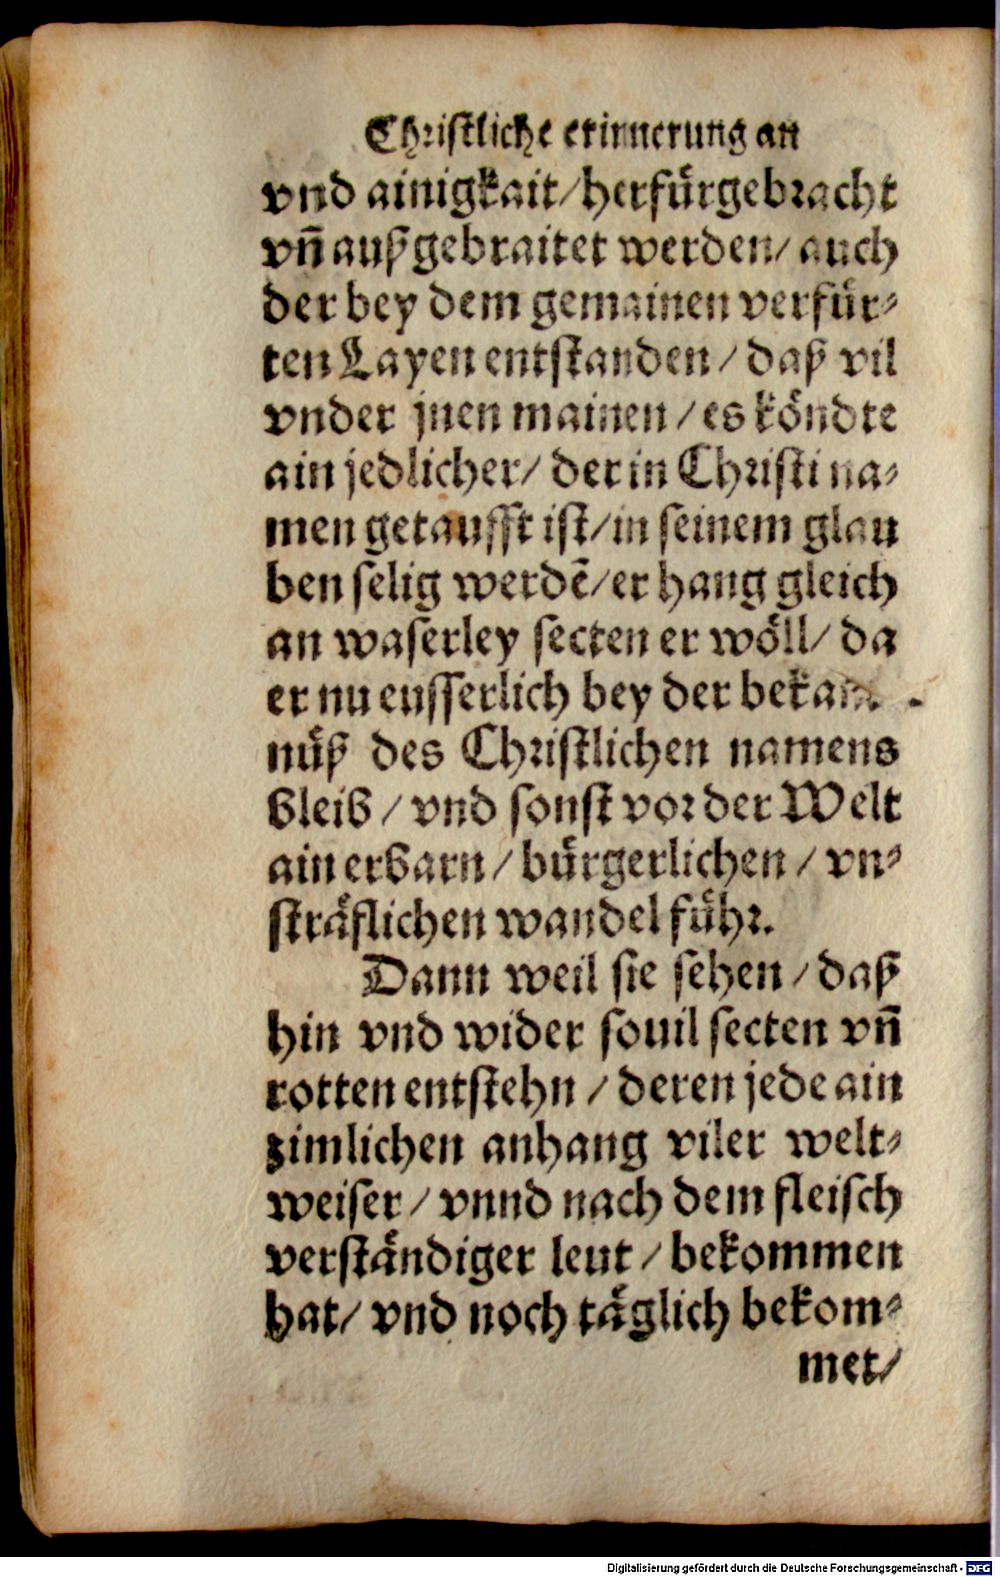 Christliche erinnerung an
vnd ainigkait/herfürgebracht
vñ außgebraitet werden/ auch
der bey dem gemainen verfür⸗
ten Layen entstanden / daß vil
vnder jnen mainen / es köndte
ain jedlicher/ der in Christi na⸗
men getaufft ist/in seinem glau
ben selig werdē/er hang gleich
an waserley secten er wöll/ da
er nu eusserlich bey der
nüß des Christlichen namens
bleib / vnd sonst vor der Welt
ain erbarn / bürgerlichen / vn⸗
sträflichen wandel führ.
Dann weil sie sehen / daß
hin vnd wider souil secten vñ
rotten entstehn / deren jede ain
zimlichen anhang viler welt⸗
weiser / vnnd nach dem fleisch
verständiger leut / bekommen
hat/ vnd noch täglich bekom⸗
met/
Digitalisierung gefördert durch die Deutsche Forschungsgemeinschaft - DFG